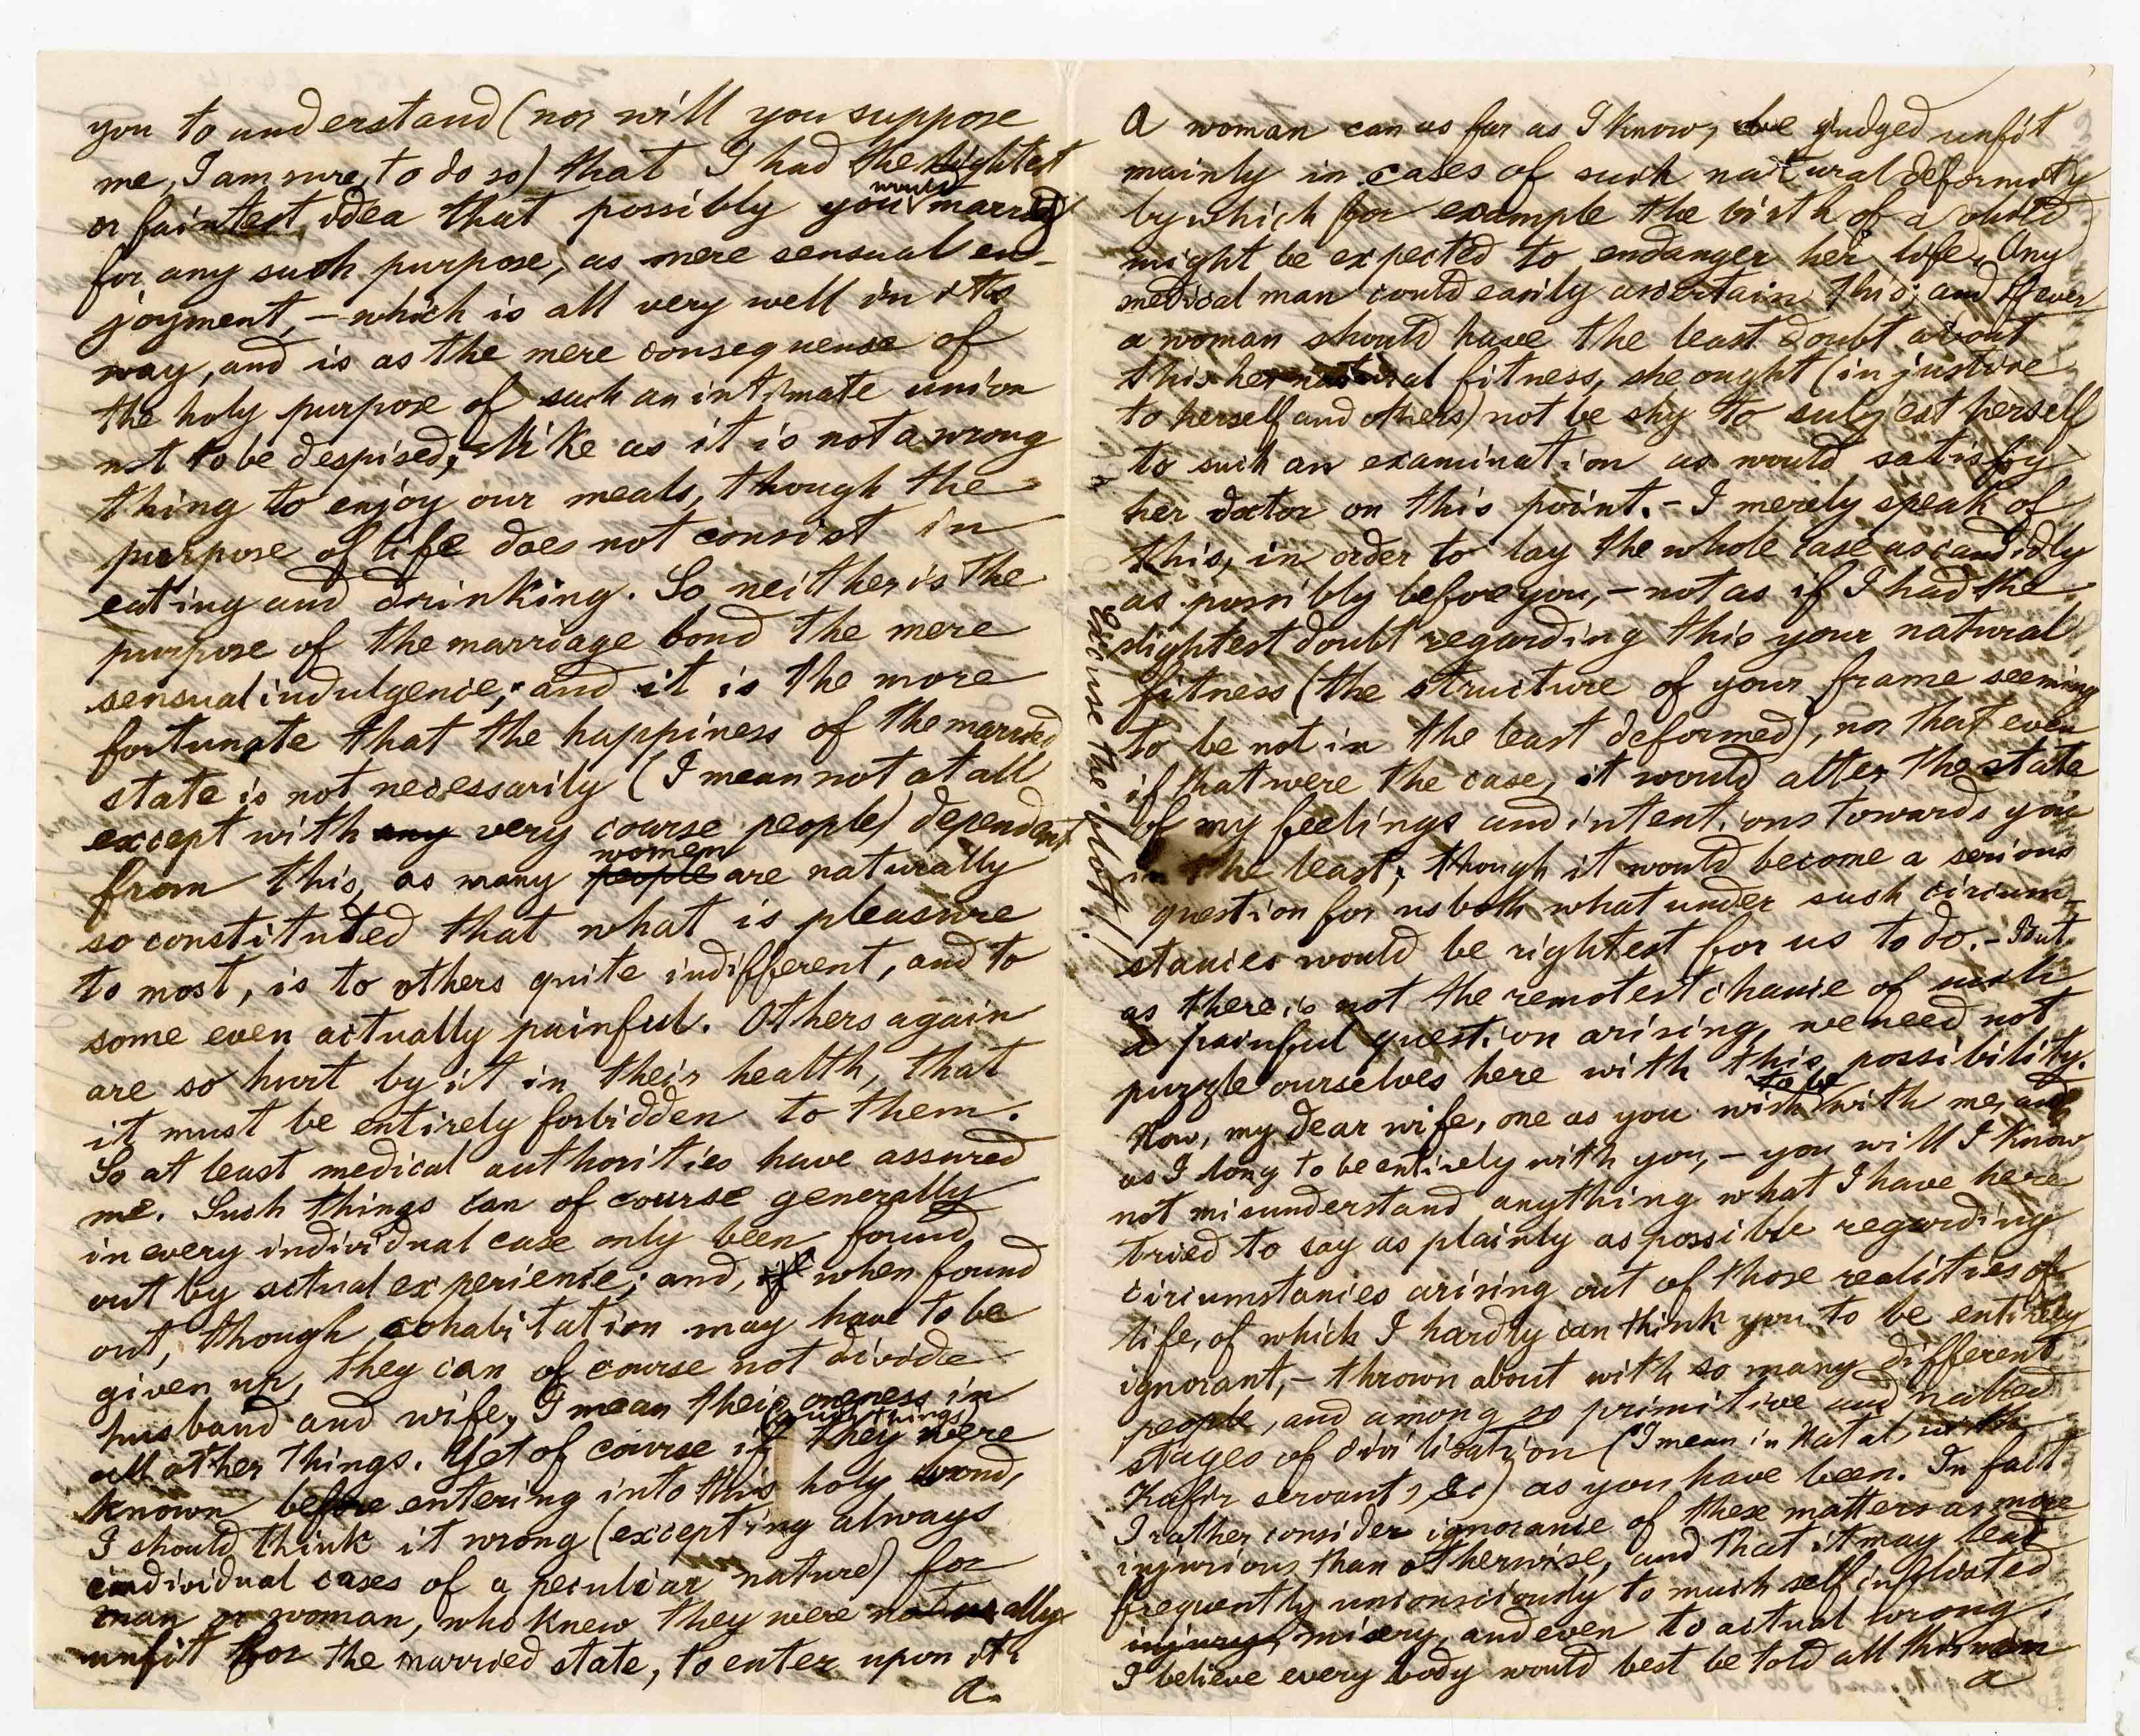 you to understand (nor will you suppose
me, I am sure, to do so) that I had the slightest
or faintest idea that possibly you would married
for any such purpose, as mere sensual en-
joyment, – which is all very well in its
way, and is as the mere consequense of
the holy purpose of such an intimate union
not to be despised, like as it is not a wrong
thing to enjoy our meals, though the
purpose of life does not consist in
eating and drinking. So neither is the
purpose of the marriage bond the mere
sensual indulgence; and it is the more
fortunate that the happiness of the married
state is not necessarily (I mean not at all
except with any very course people) dependent
from this, as many people women are naturally
so constituted that what is pleasure
to most, is to others quite indifferent, and to
some even actually painful. Others again
are so hurt by it in their health, that
it must be entirely forbidden to them.
So at least medical authorities have assured
me. Such things can of course generally
in every individual case only been found
out by actual experience; and, if when found
out, though cohabitation may have to be
given up, they can of course not divide
husband and wife, I mean their oneness in
all other things. Yet of course if they (such things) were
known before entering into this holy bond,
I should think it wrong (excepting always
individual cases of a peculiar nature) for
man or woman, who knew they were naturally
unfit for the married state, to enter upon it.
a
A woman can as far as I know, be judged unfit
mainly in cases of such natural deformity
by which for example the birth of a child
might be expected to endanger her life. Any
medical man could easily ascertain this; and if ever
a woman should have the least doubt about
this her natural fitness, she ought (in justice
to herself and others) not be shy to subject herself
to such an examination as would satisfy
her doctor on this point. – I merely speak of
this, in order to lay the whole case as candidly
as possibly before you, – not as if I had the
slightest doubt regarding this your natural
fitness (the structure of your frame seeming
to be not in the least deformed), nor that even
if that were the case, it would alter the state
of my feelings and intentions towards you
in the least; though it would become a serious
question for us both what under such circum-
stances would be rightest for us to do. – But
as there is not the remotest chance of such
a painful question arising, we need not
puzzle ourselves here with this possibility.
Now, my dear wife, one as you wish to be with me, and
as I long to be entirely with you, – you will I know
not misunderstand anything what I have here
tried to say as plainly as possible regarding
circumstances arising out of those realities of
life, of which I hardly can think you to be entirely
ignorant, – thrown about with so many different
people, and among so primitive and naked
stages of civilization (I mean in Natal, with
Kafir servants, &c) as you have been. In fact
I rather consider ignorance of these matters as more
injurious than otherwise, and that it may lead
frequently unconsciously to much self inflicted
injury, misery, and even to actual wrong.
I believe every body would best be told all this
a
Excuse the blot!